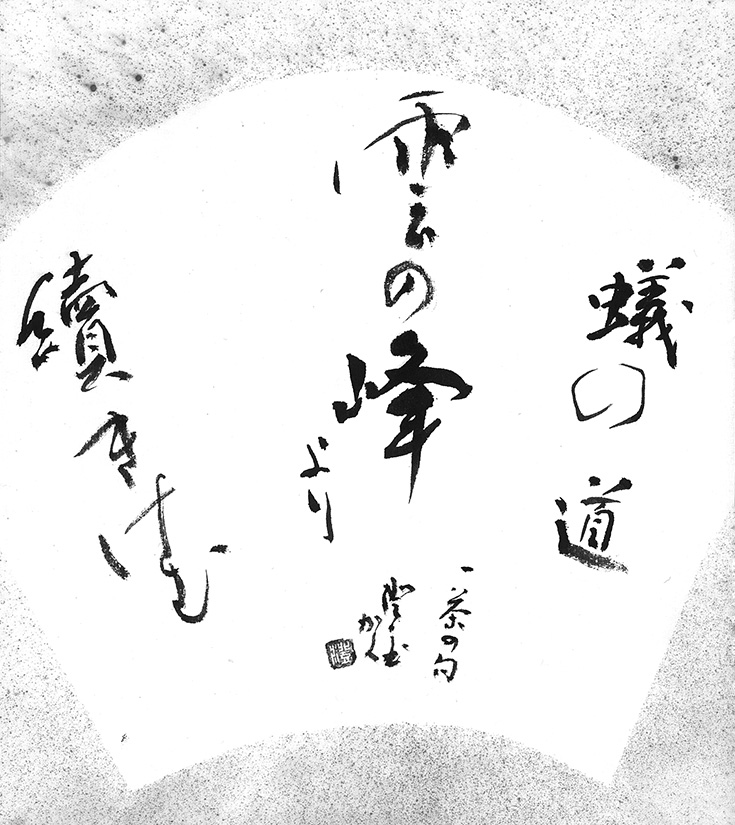 蟻の道
雲の峰
より
續きけむ
一茶の句
かく